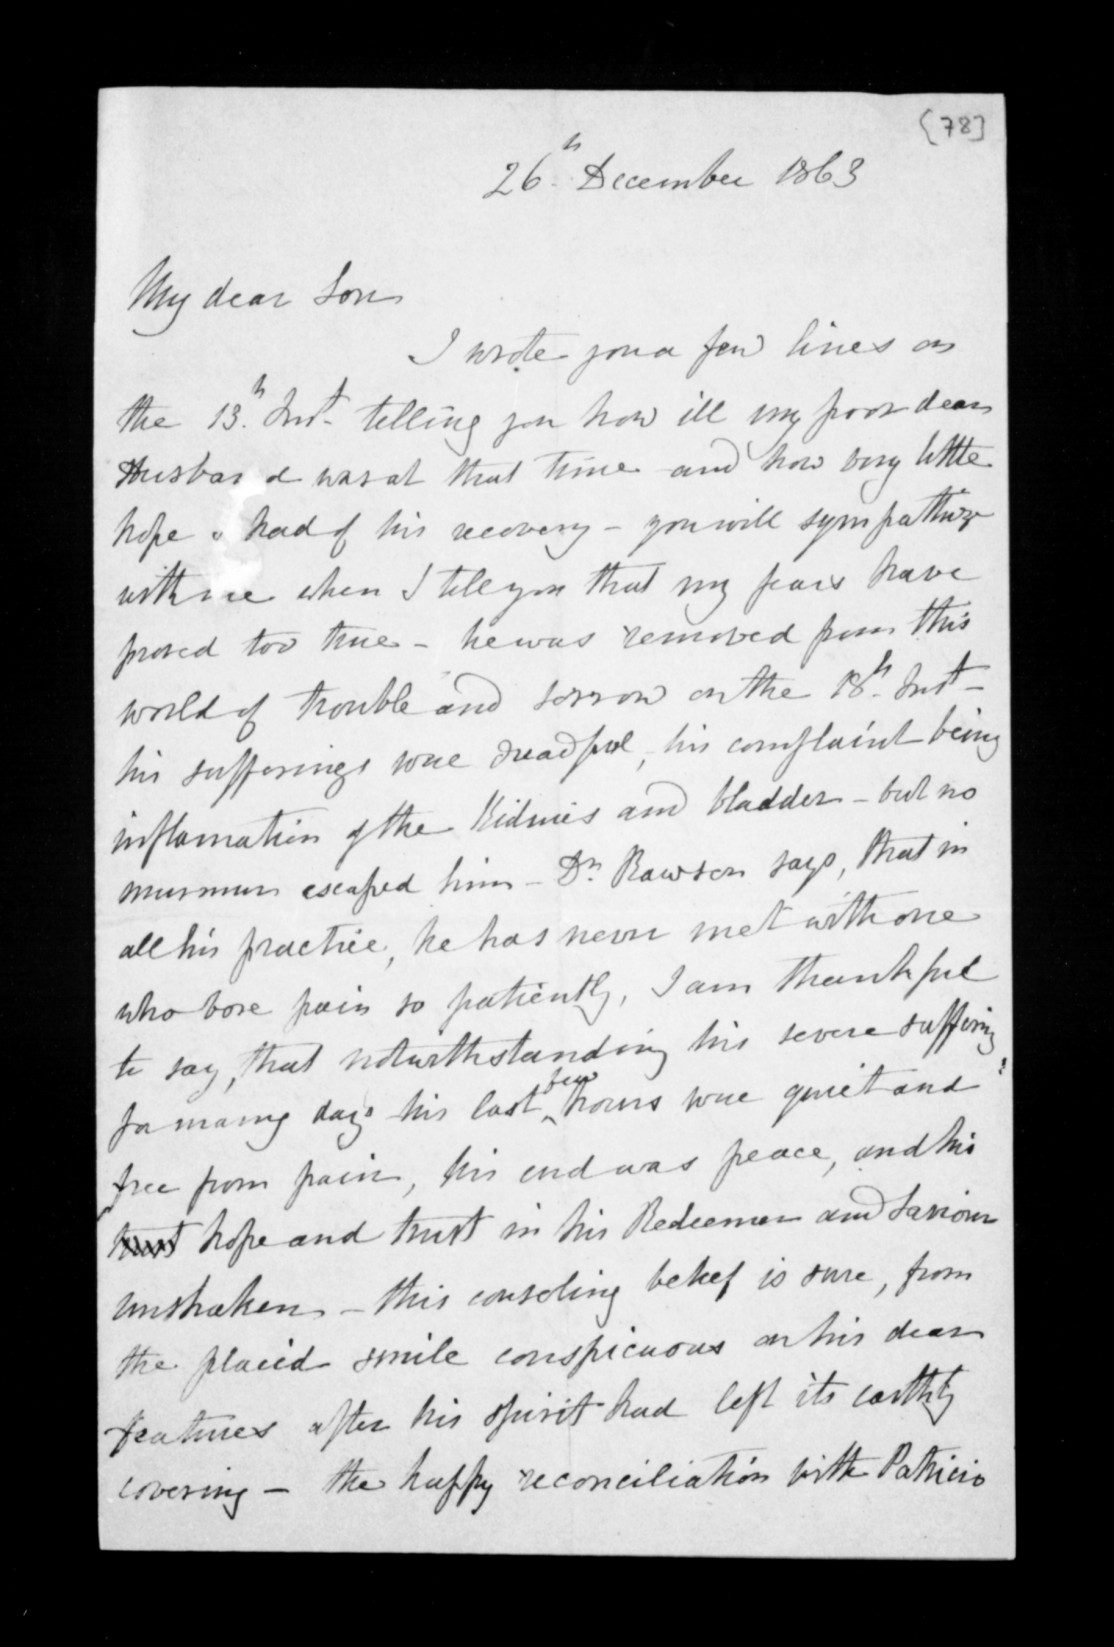 [78]
26th December 1863
My dear Son
I wrote you a few lines on
the 13th Inst telling you how ill my poor dear
Husband was at that time and how very little
hope I had of his recovery - you will sympathize
with me when I tell you that my fears have
proved too true - he was removed from this
world of trouble and sorrow on the 18th Inst -
his sufferings were dreadful, his complaint being
inflamation of the Kidnies and bladder - but no
murmur escaped him - Dr Rawson says, that in
all his practice, he has never met with one
who bore pain so patiently, I am thankful
to say, that notwithstanding his severe suffering
for many days his last few hours were quiet and
free from pain, his end was peace, and his
trust hope and trust in his Redeemer and Saviour
unshaken - this consoling belief is sure, from
the placid smile conspicuous on his dear
features after his spirit had left its earthly
covering - the happy reconciliation with Patricio